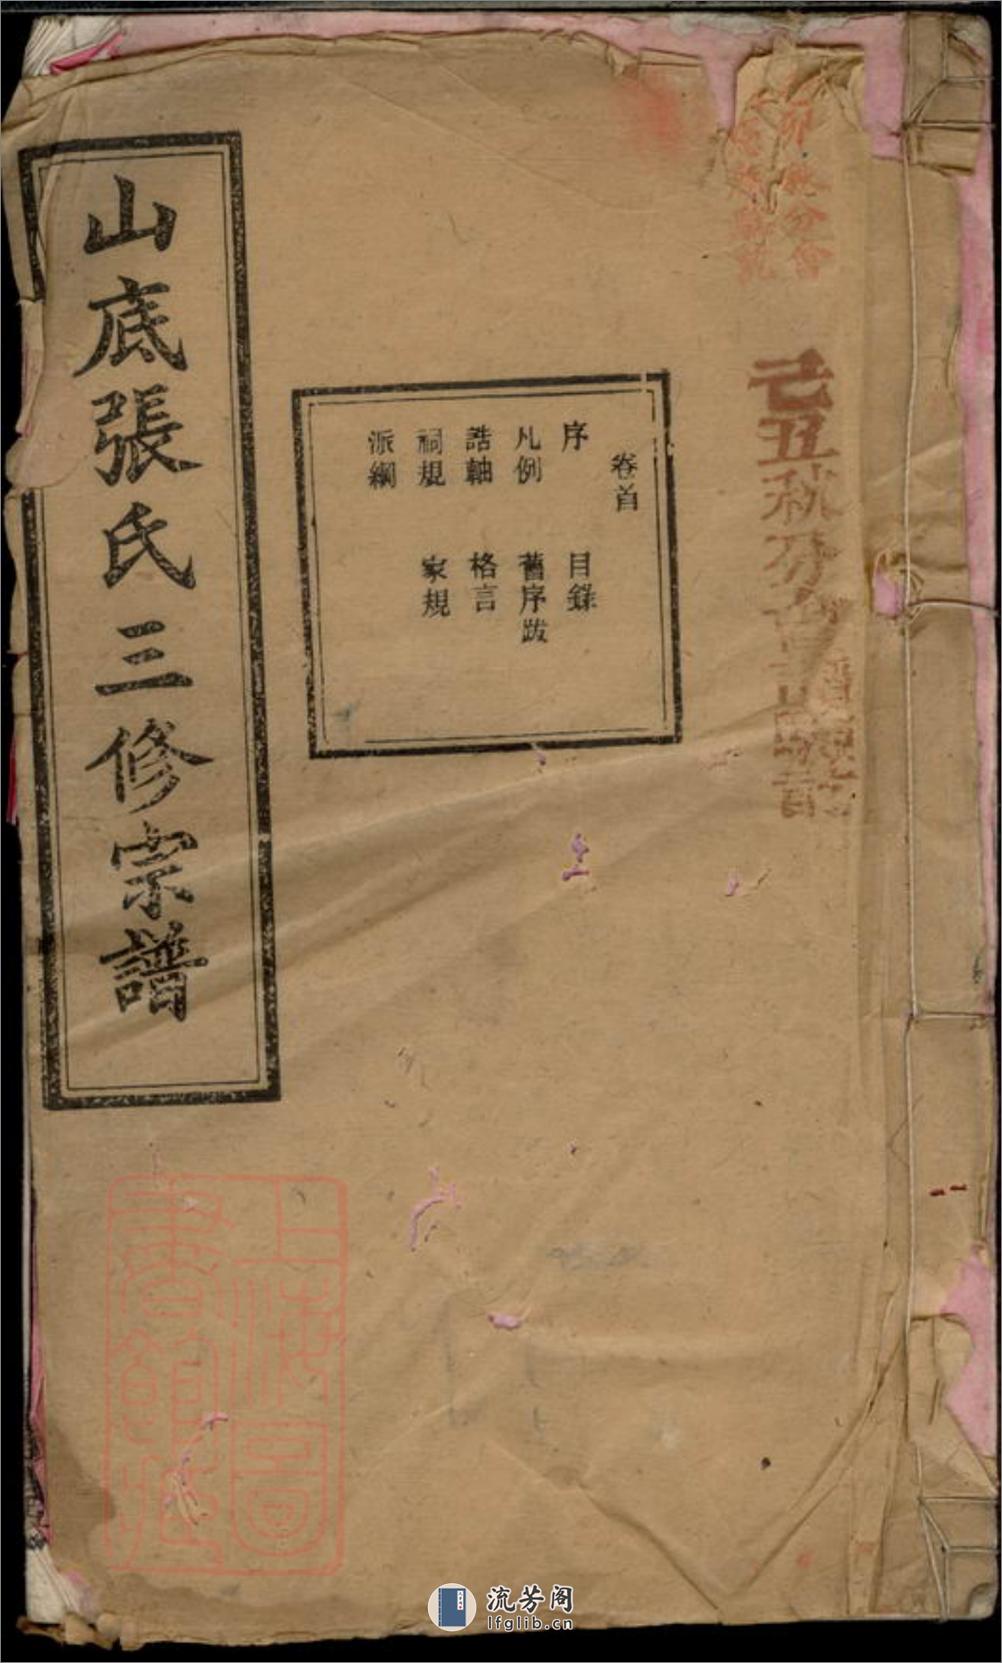 己丑秋分會
卷首
序 目錄
凡例 舊序跋
誥軸 格言
祠規 家規
派綱
山底張氏三修宗譜
上海圖書館藏
流芳阁
lfglib.cn